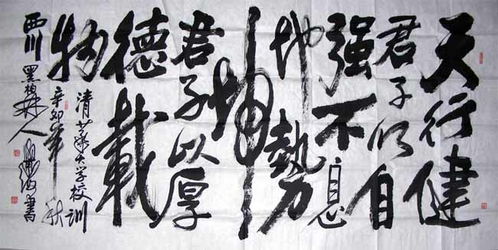 天行健
君子以自
强不息
地勢
坤
君子以厚
德載
物
清華大学校訓
辛卯年秋
西川
人
書